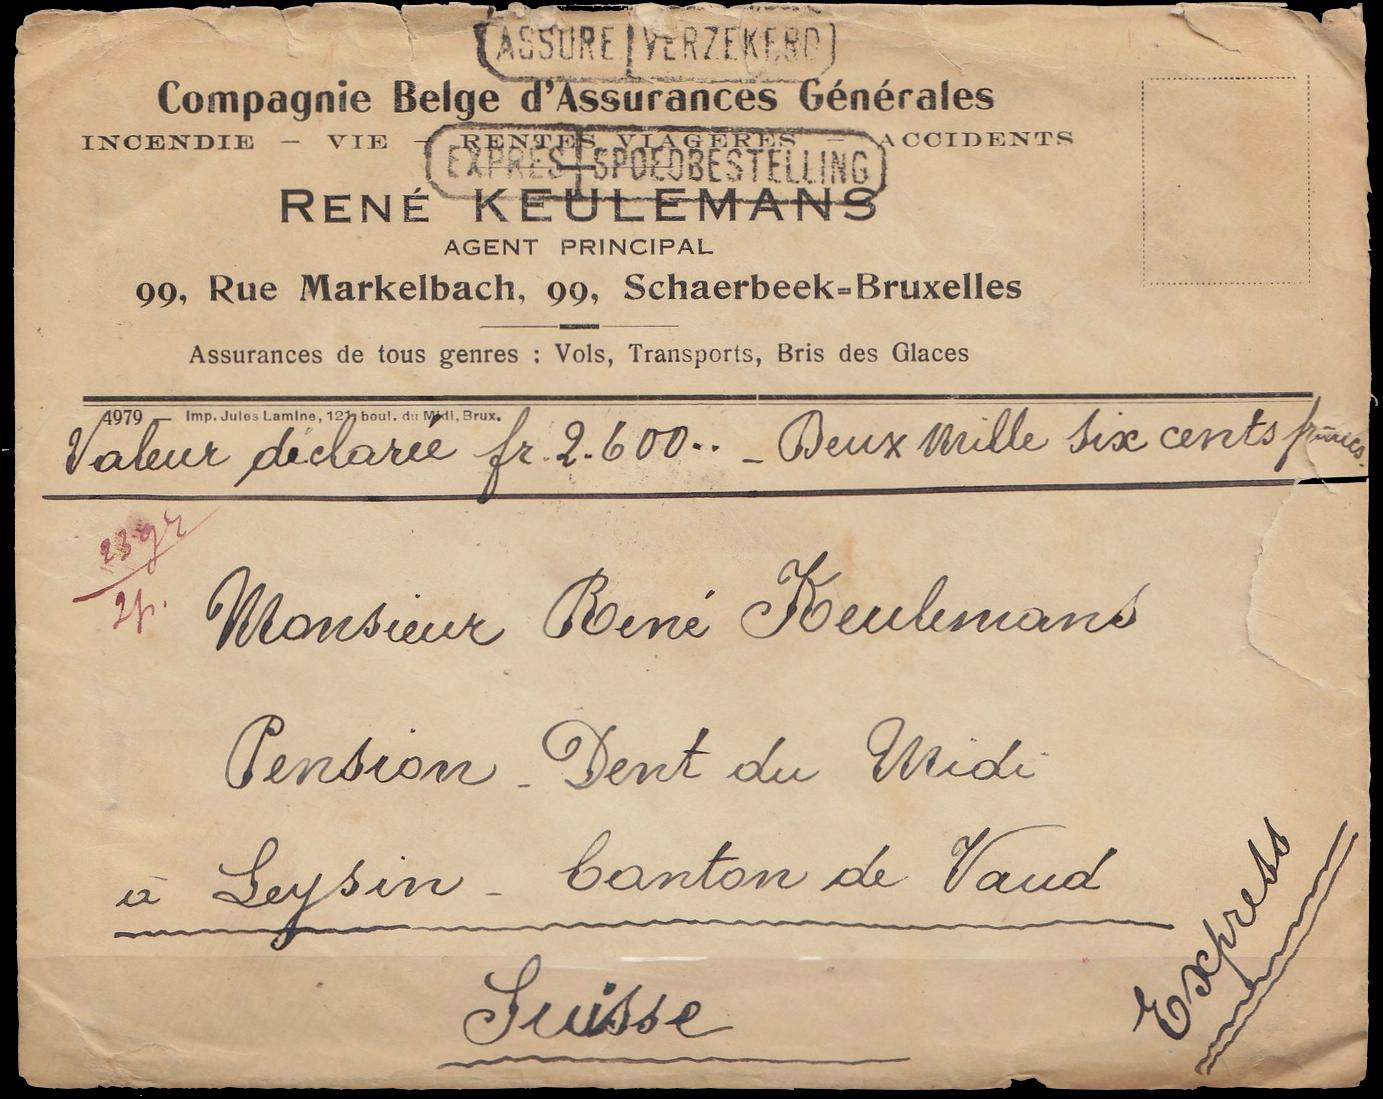 ASSURE VERZEKERD
Compagnie Belge d'Assurances Générales
INCENDIE – VIE – RENTES VIAGÈRES – ACCIDENTS
EXPRES SPOEDBESTELLING
RENÉ KEULEMANS
AGENT PRINCIPAL
99, Rue Markelbach, 99, Schaerbeek=Bruxelles
Assurances de tous genres : Vols, Transports, Bris des Glaces
4979 — Imp. Jules Lamine, 121, boul. du Midi, Brux.
Valeur déclarée fr. 2.600.. _ Deux mille six cents francs.
23 gr
2p.
Monsieur René Keulemans
Pension - Dent du Midi
à Leysin - Canton de Vaud
Suisse
Express